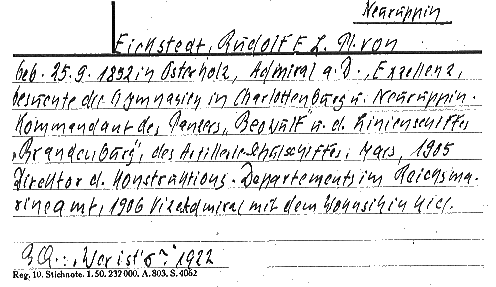 Neuruppin
Eickstedt, Rudolf E. L. M. von
geb. 25.9.1852 in Osterholz, Admiral a.D., Exzellenz,
besuchte die Gymnasien in Charlottenburg u. Neuruppin.
Kommandant des Panzers „Beowulf" u. d. Linienschiffes
„Brandenburg", des Artillerie-Schulschiffes: Mars, 1905
Direktor d. Konstruktions-Departements im Reichsma-
rineamt, 1906 Vizeadmiral mit dem Wohnsitz in Kiel.
BQ.: „Wer ist's?" 1922
Reg. 10. Stichnote. I. 50. 232 000. A. 803. S. 4062